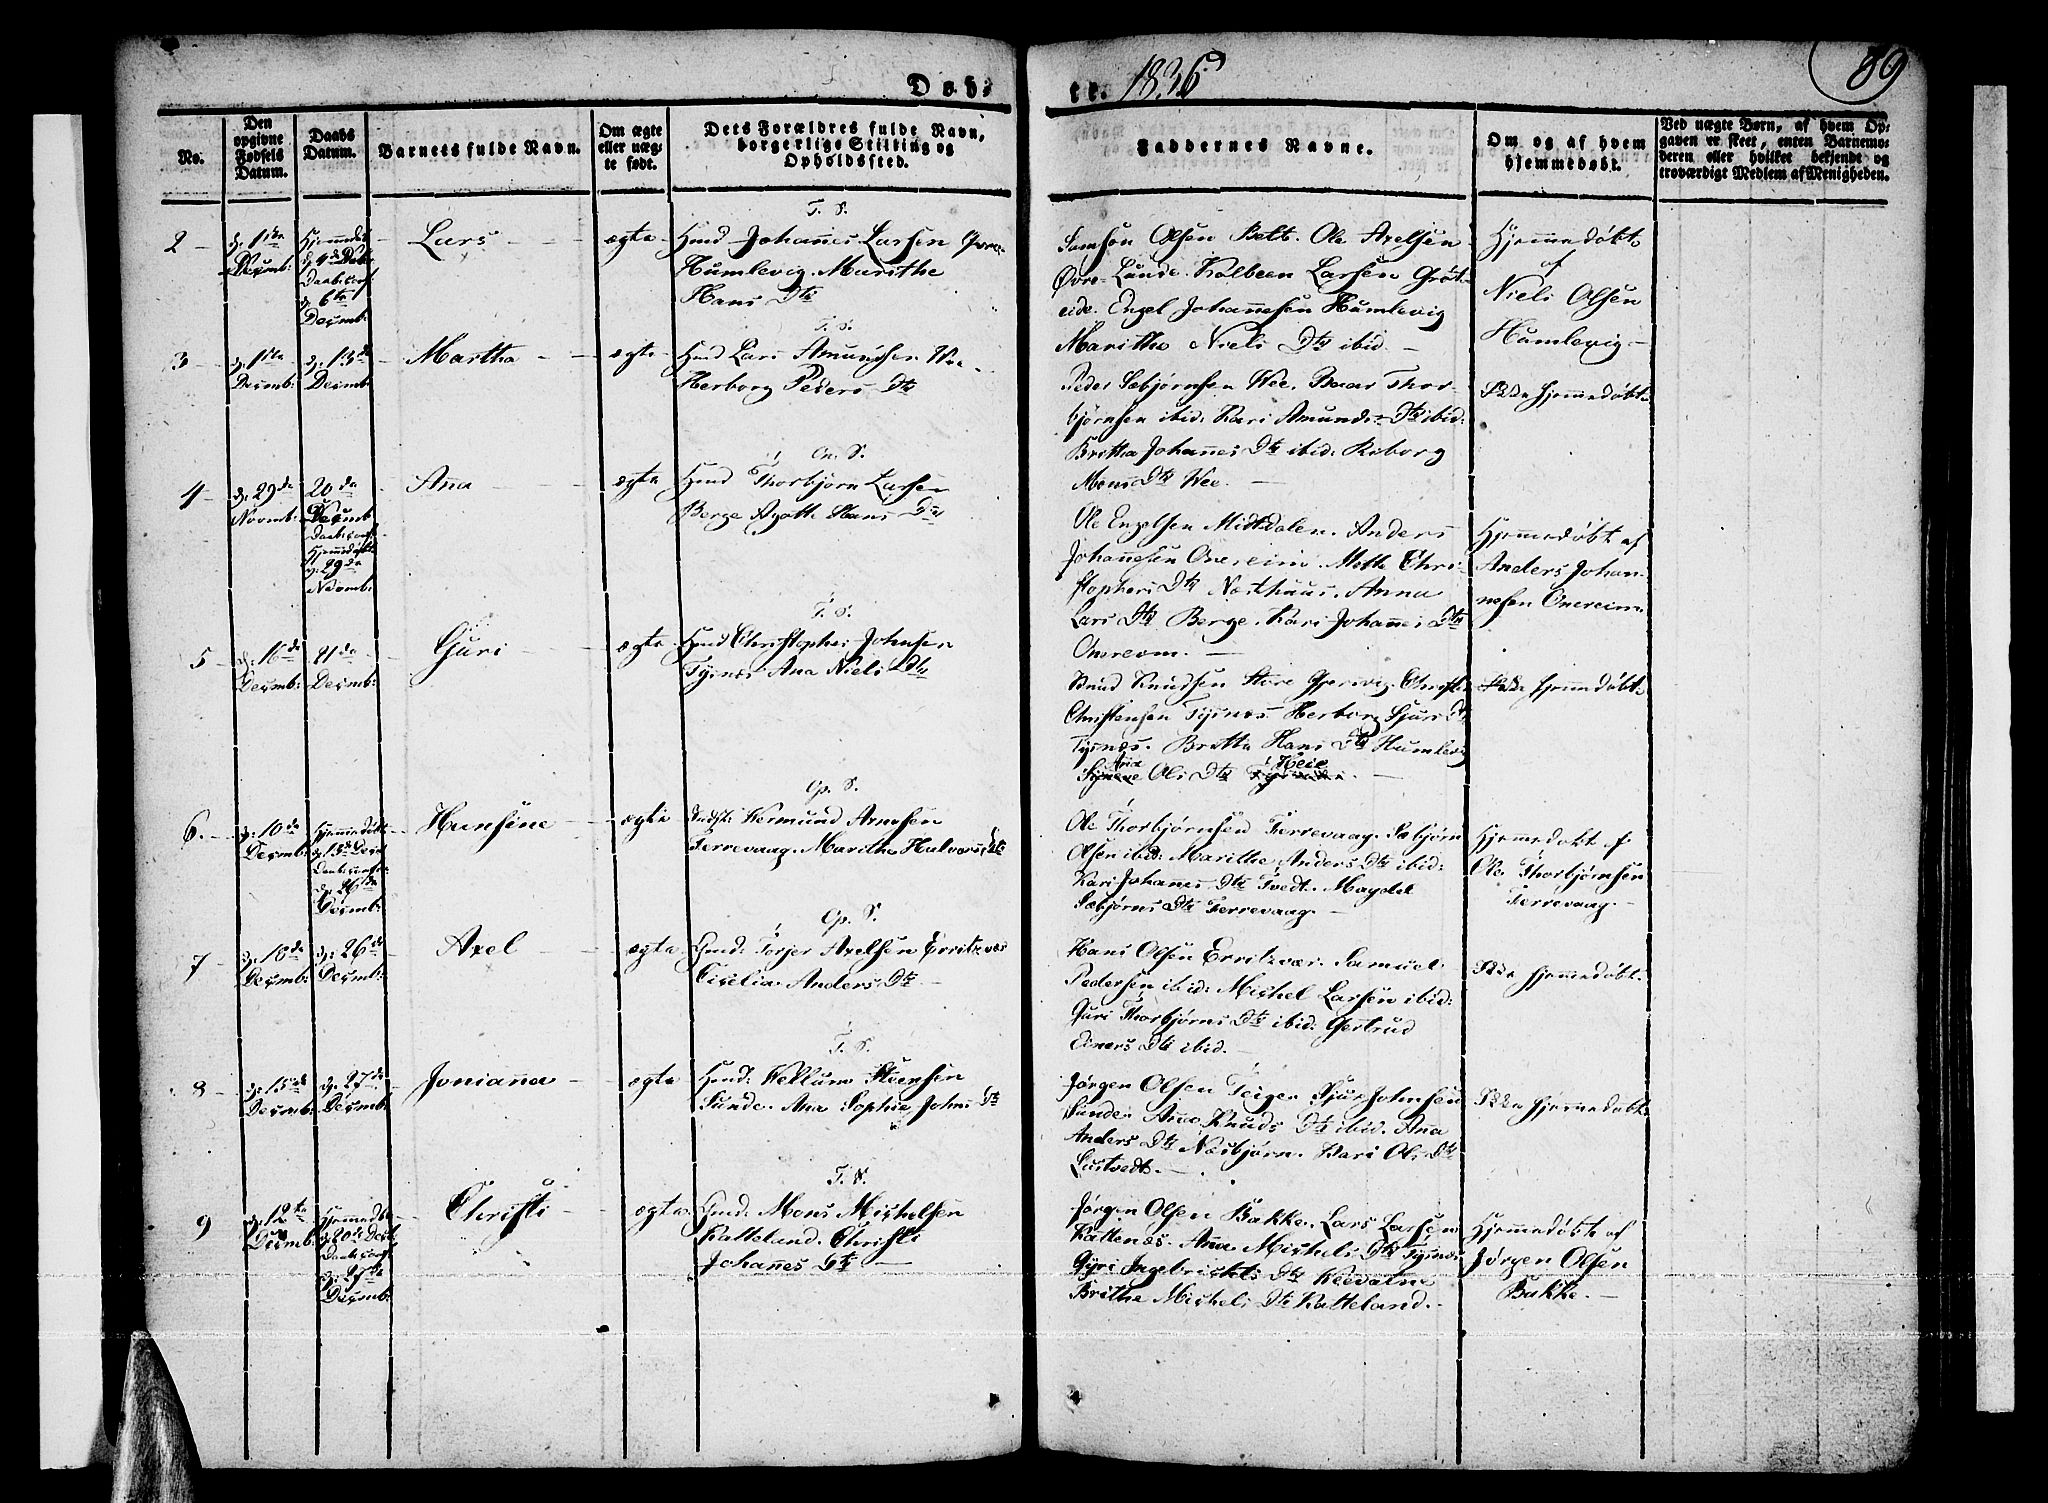 Døb-
te. 1836
89
No.
Den opgivne Fødsels Datum.
Daabs Datum.
Barnets fulde Navn.
Om ægte eller uægte født.
Dets Forældres fulde Navn, borgerlige Stilling og Opholdssted.
Faddernes Navne.
Om og af hvem hjemmedøbt.
Ved uægte Børn, af hvem Opgaven er skeet, enten Barnemoderen eller hvilket bekjendt og troværdigt Medlem af Menigheden.
T. S.
2
Decemb:
Hjemmedøbt
6te
Decemb:
Lars
ægte
Hmd Johannes Larsen Øvre
Humlevig. Marithe
Hans Dtr
Samson Olsen Ole Axelsen
Øvre Lunde. Larsen
eide. Engel Johannesen Humlevig
Marithe Niels Dtr ibid
Hjemmedøbt
af
Niels Olsen
Humlevig
T. S.
3
Decemb:
d: 13de
Decemb:
Martha
ægte
Hmd Lars Amundsen
Herborg Peders Dtr
Peder Sæbjørnsen Wee. Thor-
bjørnsen ibid: Kari Amunds Dtr ibid:
Britha Johannes Dtr ibid:
Mons Dtr Wee.
Ikke hjemmedøbt
On. S.
4
d: 29de
Novmb:
20de
Decemb
Hjemmedøbt
d: 29de
Novmb:
Anna
ægte
Hmd Thorbjørn Larsen
Berge Hans Dtr
Ole Engelsen Midtdalen. Anders
Johannesen Onereim. Chri-
stophers Dtr Næsthuus. Anna
Lars Dtr Berge. Kari Johannes Dtr
Onereim.
Hjemmedøbt af
Anders Johan-
nesen Onereim
T. S.
5
d: 16de
Decmb:
21de
Decmb:
Guri
ægte
Hmd Christopher Johnsen
Tysnæs Ana Niels Dtr
Knud Knudsen Store
Christensen Tysnæs. Herborg Sjurs Dtr
Tysnæs. Britha Hans Dtr Humlevig
Ana Heie
Ols Dtr
Ikke hjemmedøbt
Op. S.
6.
d: 10de
Decmb:
Hjemmedøbt
d: 13de
d: 26de
Decmb:
Hansine
ægte
Wermund Arnesen
Terrevaag. Marithe Halvors Dtr
Ole Thorbjørnsen Terrevaag. Sæbjørn
Olsen ibid: Marithe Anders Dtr ibid:
Kari Johannes Dtr Tvedt. Magdel
Sæbjørns Dtr Terrevaag.
Hjemmedøbt af
Ole Thorbjørnsen
Terrevaag.
Op. S.
7
d: 10de
Decmb:
d: 26de
Decmb:
Axel
ægte
Gmd: Torjer Axelsen Erritzvær
Cicelia Anders Dtr
Hans Olsen Erritzvær. Samuel
Pedersen ibid: Michel Larsen ibid:
Guri Thorbjørns Dtr ibid: Gertrud
Einers Dtr ibid.
Ikke hjemmedøbt.
T. S.
8
d: 15de
Decmb:
d: 27de
Decmb:
Jonianna
ægte
Gmd: Wellum Steensen
Sunde. Ana Sophia Johns Dtr
Jørgen Olsen Teigen Sjur Johnsen
Sunde. Anna Knuds Dtr ibid. Anna
Anders Dtr Næsbjørn. Kari Ols Dtr
Lustvedt.
Ikke hjemmedøbt
T. S.
9
d: 12te
Decmb:
Hjemmedøbt
d: 20de
d: 27de
Decmb:
Christi
ægte
Gmd: Mons Michelsen
Katteland. Christi
Johannes Dtr
Jørgen Olsen Bakke. Lars Larsen
Kattenæs. Anna Michels Dtr Tysnæs
Gyri Ingebrigts Dtr
Brithe Michels Dtr Katteland.
Hjemmedøbt af
Jørgen Olsen
Bakke.